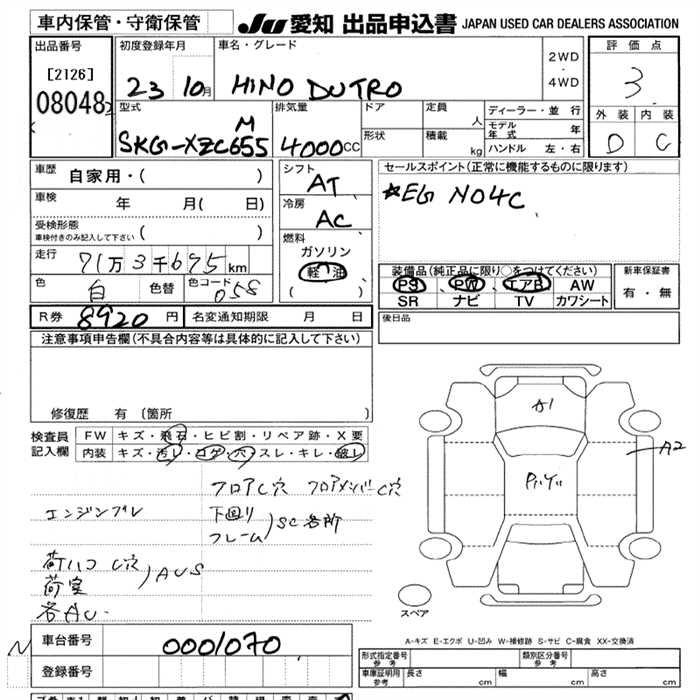 車内保管・守衛保管
JU 愛知 出品申込書 JAPAN USED CAR DEALERS ASSOCIATION
出品番号
[2126]
08048
初度登録年月
23 10月
車名・グレード
HINO DUTRO
2WD
・
4WD
評価点
3
外装 内装
D C
型式
SKG-XZC655M
排気量
4000cc
ドア
形状
定員
人
積載
kg
ディーラー・並行
モデル年式 年
ハンドル 左・右
車歴 自家用・( )
車検 年 月( 日)
受検形態
車検付きのみ記入して下さい ( )
走行 71万3千675km
色 白 色替 色コード 058
シフト
AT
冷房
AC
燃料
ガソリン
軽油
( )
セールスポイント(正常に機能するものに限ります)
☆EG N04C
装備品(純正品に限り○をつけてください)
PS PW エアB AW
SR ナビ TV カワシート
新車保証書
有・無
R券 8920円 名変通知期限 月 日
後日品
注意事項申告欄(不具合内容等は具体的に記入して下さい)
修復歴 有 (箇所 )
検査員記入欄
FW キズ・飛石・ヒビ割・リペア跡・X要
内装 キズ・汚レ・コゲ・穴・スレ・キレ・破レ
フロアC穴 フロアメンバーC穴
エンジンブレ
下回り
フレーム
)SC各所
荷ハコ C穴
荷室
)AUS
各AU
A1
A2
スペア
A-キズ E-エクボ U-凹み W-補修跡 S-サビ C-腐食 XX-交換済
車台番号 0001070
登録番号
形式指定番号 参考
類別区分番号 参考
車庫証明用 参考 長さ cm 幅 cm 高さ cm